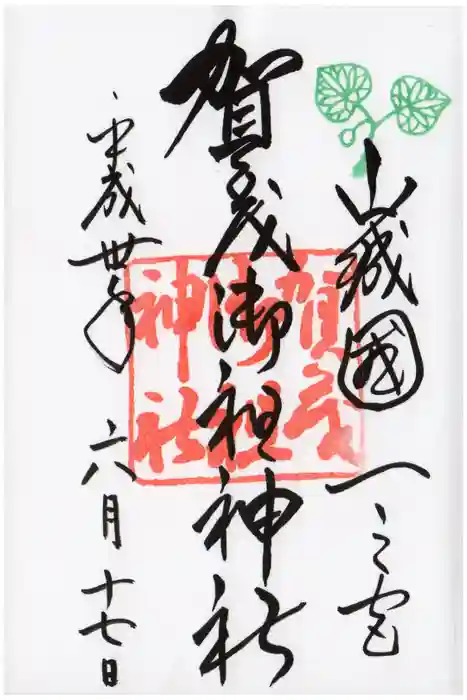 山城國一之宮
賀茂御祖神社
平成丗年六月十七日
賀茂
御祖
神社